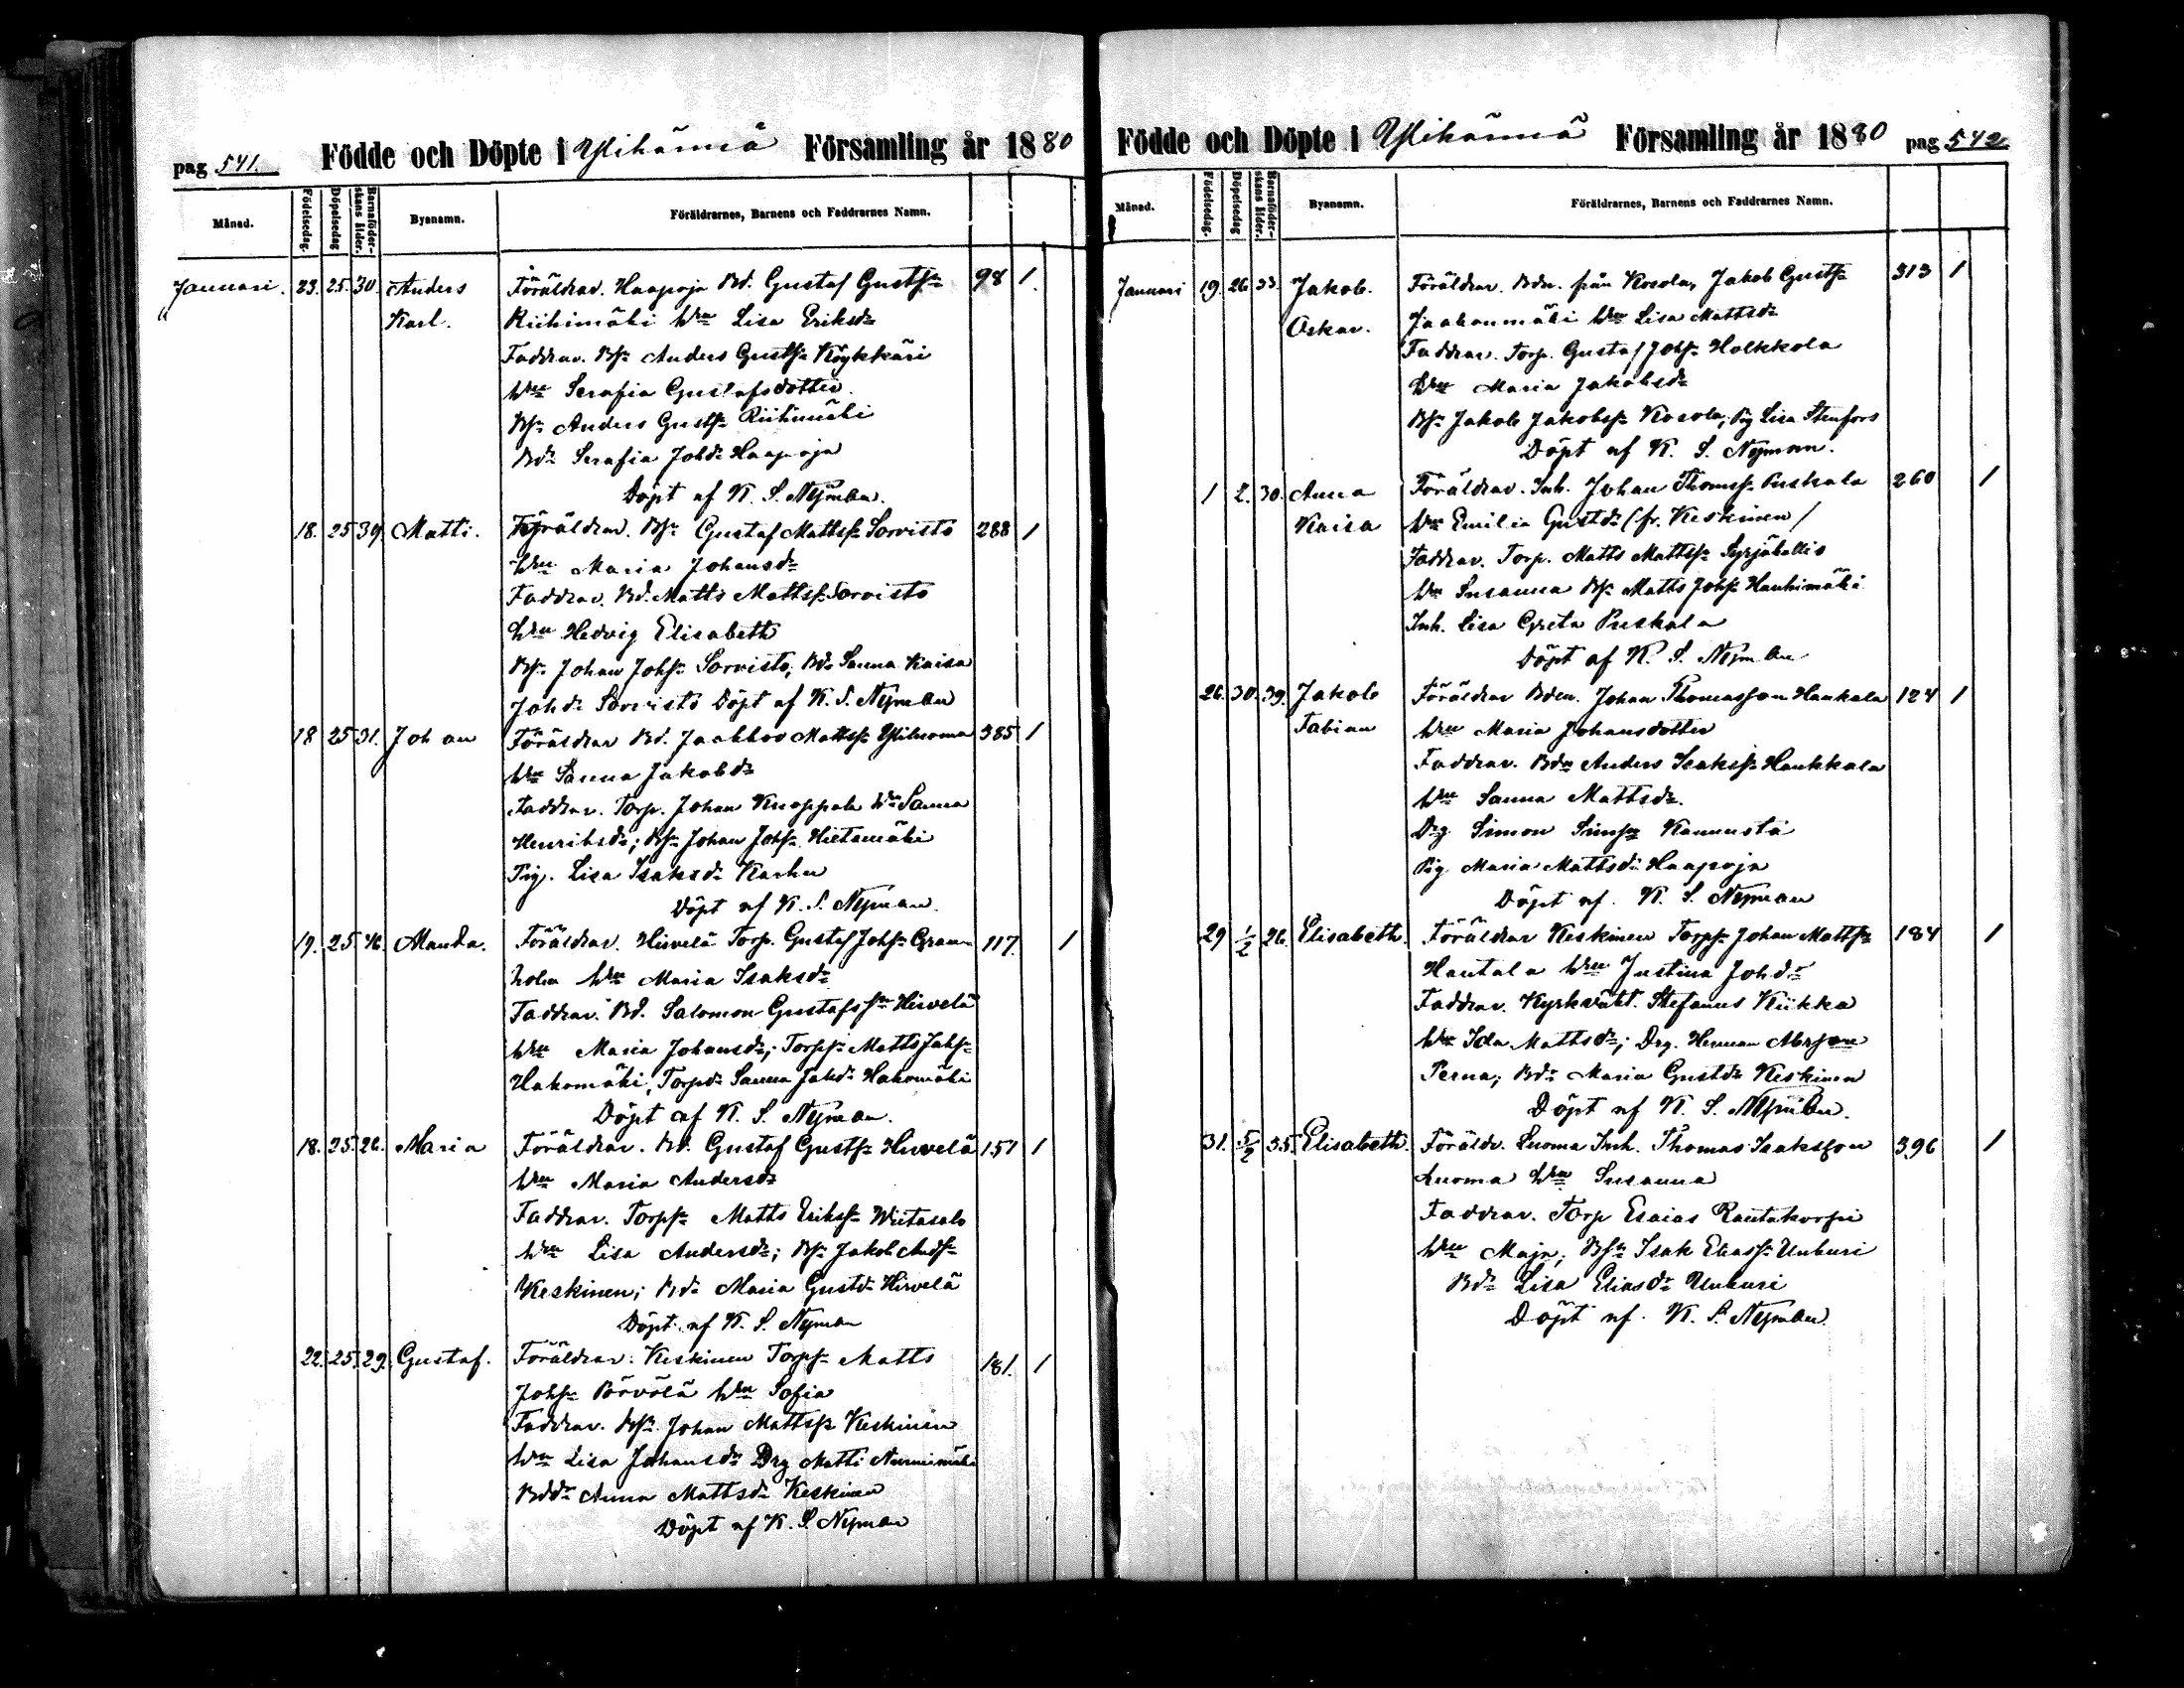 pag 541. Födde och Döpte i Ylihärmä Församling år 1880
Månad. Födelsedag. Döpelsedag Barnaföderskans ålder. Bysnamn. Föräldrarnes, Barnens och Faddrarnes Namn.
Januari. 23. 25. 30. Anders Föräldrar. Haapoja Bd. Gustaf Gustfsn 98 1.
Karl. Riihimäki Hru Lisa Eriksdr
Faddrar. Bsn Anders Gustfsn Köykkäri
Hru Serafia Gustafsdotter.
Bsn Anders Gustfsn Riihimäki
Bdr Serafia Johdr Haapoja
Döpt af K. S. Nyman.
18. 25 39. Matti. Föräldrar. Bsn Gustaf Mattssn Sorvisto 288 1
Hru Maria Johansdr
Faddrar. Bd. Matts Mattssn Sorvisto
Hru Hedvig Elisabeth
Bsn Johan Johsn Sorvisto; Bdr Sanna Kaisa
Johdr Sorvisto Döpt af K. S. Nyman
18 25 31. Johan Föräldrar Bd. Jaakkoo Mattssn Yliluoma 385 1
Hru Sanna Jakobdr
Faddrar. Torp. Johan Knuppala Hru Sanna
Henriksdr; Bsn Johan Johsn Hietamäki
Pig. Lisa Isaksdr Karhu
Döpt af K. S. Nyman.
19. 25. 46. Manda. Föräldrar. Hirvelä Torp. Gustaf Johsn Gran- 117. 1
holm Hru Maria Isaksdr
Faddrar. Bd. Salomon Gustafssn Hirvelä
Hru Maria Johansdr; Torpsn Matts Johsn
Hakomäki, Torpdr Sanna Johdr Hakomäki
Döpt af K. S. Nyman.
18. 25. 26. Maria Föräldrar. Bd. Gustaf Gustfsn Hirvelä 151 1
Hru Maria Andersdr
Faddrar. Torpsn Matts Erikssn Wietasalo
Hru Lisa Andersdr; Bsn Jakob Andsn
Keskinen; Bdr Maria Gustdr Hirvelä
Döpt af K. S. Nyman
22. 25. 29. Gustaf. Föräldrar: Keskinen Torpsn Matts 181. 1
Johsn Pörvölä Hru Sofia
Faddrar. Bsn Johan Mattssn Keskinen
Hru Lisa Johansdr Drg Matti Nurmimäki
Bddr Anna Mattsdr Keskinen
Döpt af K. S. Nyman
Födde och Döpte i Ylihärmä Församling år 1880 pag 542
Månad. Födelsedag. Döpelsedag Barnaföderskans ålder. Bysnamn. Föräldrarnes, Barnens och Faddrarnes Namn.
Januari 19. 26 33. Jakob. Föräldrar. Bdn. från Kosola, Jakob Gustfsn 313 1
Oskar. Jaakonmäki Hru Lisa Mattsdr
Faddrar. Torp. Gustaf Johsn Holkkola
Hru Maria Jakobsdr
Bsn Jakob Jakobssn Kosola, Pig Lisa Stenfors
Döpt af K. S. Nyman.
1 2. 30. Anna Föräldrar. Inh. Johan Thomssn Puskala 260 1
Kaisa Hru Emilia Gustdr (fr. Keskinen/
Faddrar. Torp. Matts Mattssn
Hru Susanna Bsn Matts Johsn Hanhimäki
Inh. Lisa Greta Puskala
Döpt af K. S. Nyman
26. 30. 39. Jakob Föräldrar Bden. Johan Thomasson Haukala 124 1
Fabian Hru Maria Johansdotter
Faddrar. Bdn Anders Isakssn Haukkala
Hru Sanna Mattsdr.
Drg Simon Simssn Kannusta
Pig Maria Mattsdr Haapoja
Döpt af. K. S. Nyman
29 1/2 26. Elisabeth. Föräldrar Keskinen Torpsn Johan Mattssn 184 1
Hautala Hru Justina Johdr
Faddrar. Kyrkväkt. Stefanus Kiikka
Hru Ida Mattsdr; Drg. Herman
Perna; Bdr Maria Gustdr Keskinen
Döpt af K. S. Nyman.
31. 5/2 35. Elisabeth. Föräldr. Luoma Inh. Thomas Isaksson 396 1
Luoma Hru Susanna
Faddrar. Torp Esaias Rautakorpi
Hru Maja; Bsn Isak Eliassn Unkuri
Bdr Lisa Eliasdr Unkuri
Döpt af. K. S. Nyman.